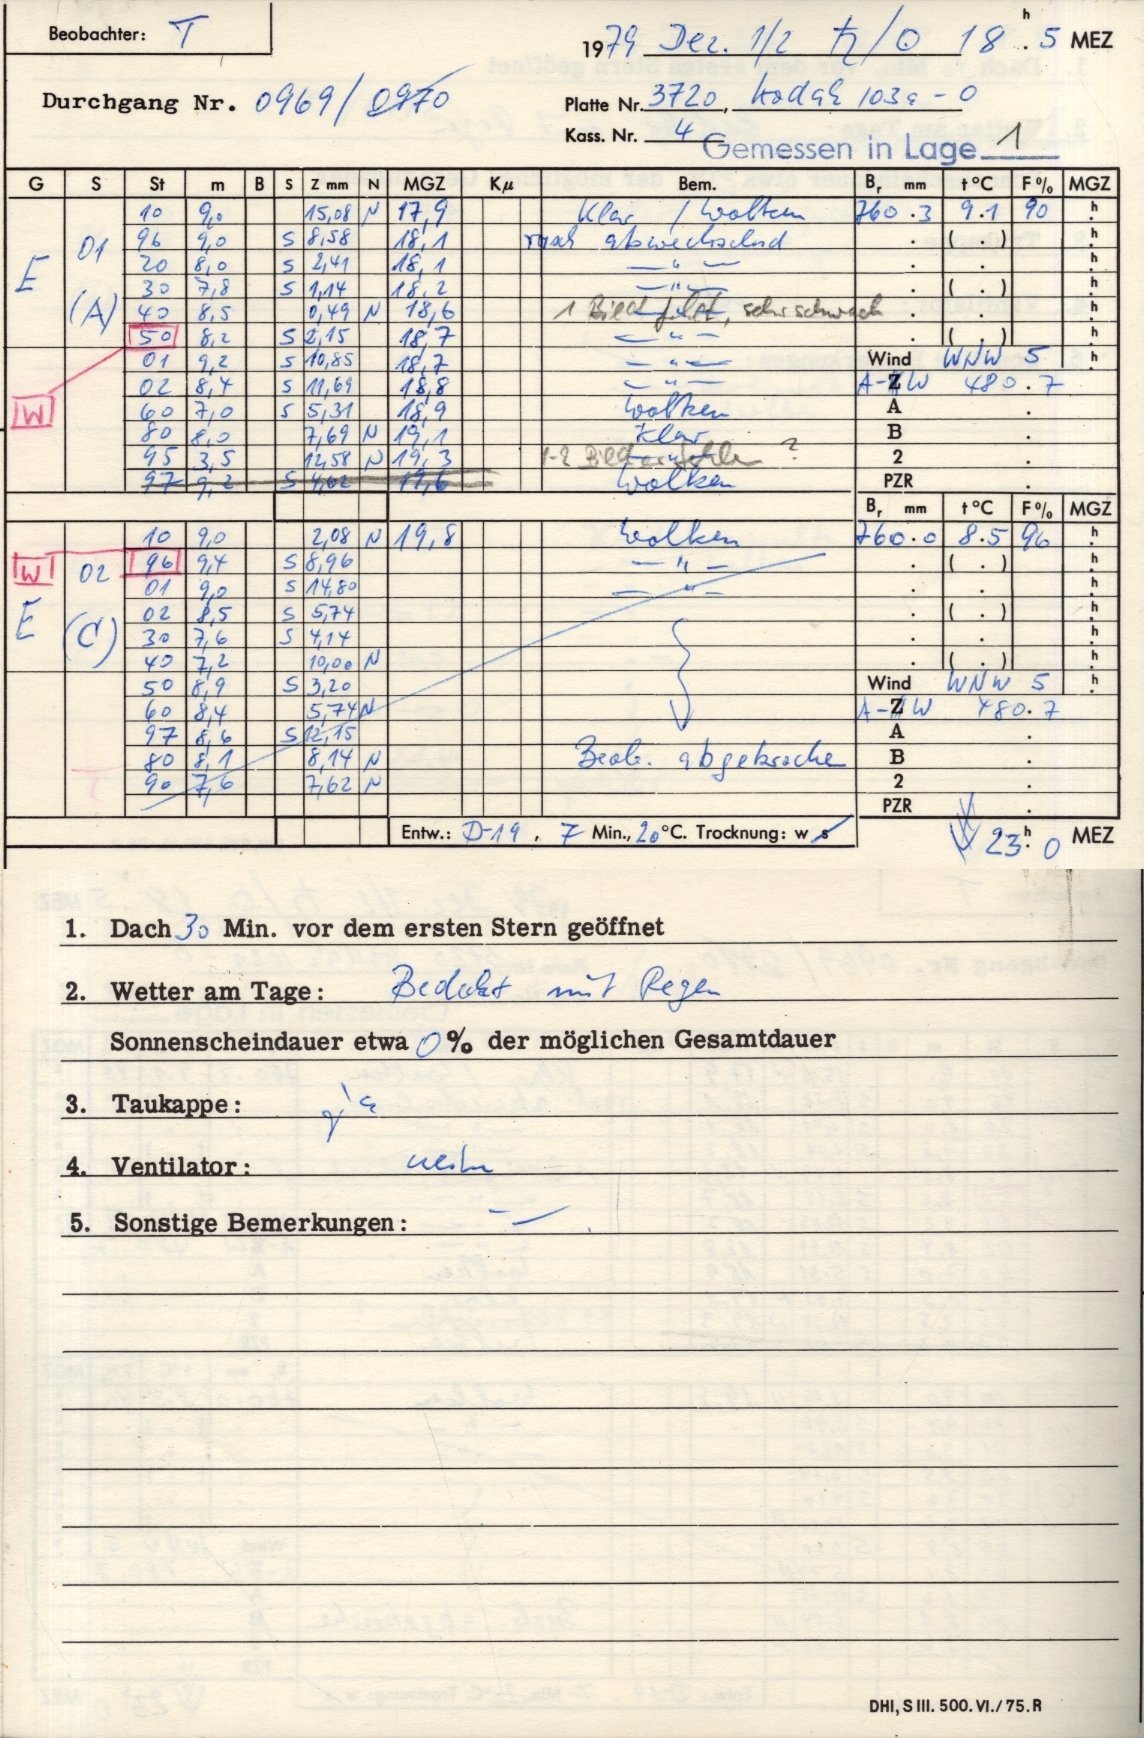 Beobachter: T
1979 Dez. 1/2 ♄/⊙ 18ʰ.5 MEZ
Durchgang Nr. 0969/0970
Platte Nr. 3720, Kodak 103a-O
Kass. Nr. 4
Gemessen in Lage 1
G S St m B S Z mm N MGZ Kμ Bem. Bᵣ mm t°C F% MGZ
10 9,0 15,08 N 17,9 Klar / Wolken 760.3 9.1 90 h
E 01 96 9,0 S 8,58 18,1 rasch abwechselnd . ( . ) h
20 8,0 S 2,41 18,1 — " — . . h
30 7,8 S 1,14 18,2 — " — . ( . ) h
(A) 40 8,5 0,49 N 18,6 1 Bild fehlt, sehr schwach . . h
50 8,2 S 2,15 18,7 — " — . ( . ) h
01 9,2 S 10,85 18,7 — " — Wind WNW 5 h
02 8,4 S 11,69 18,8 — " — A-W Z 480.7
W 60 7,0 S 5,31 18,9 Wolken A .
80 8,0 7,69 N 19,1 Klar B .
95 3,5 12,58 N 19,3 1-2 Bilder fehlen ? 2 .
97 9,2 S 4,02 19,6 Wolken PZR .
Bᵣ mm t°C F% MGZ
10 9,0 2,08 N 19,8 Wolken 760.0 8.5 96 h
W 02 96 9,4 S 8,96 — " — . ( . ) h
01 9,0 S 14,80 — " — . . h
E (C) 02 8,5 S 5,74 . ( . ) h
30 7,6 S 4,14 . . h
40 7,2 10,00 N . ( . ) h
50 8,9 S 3,20 Wind WNW 5 h
60 8,4 5,74 N A-W Z 480.7
97 8,6 S 12,15 A .
80 8,1 8,14 N Beob. abgebrochen B .
90 7,6 7,62 N 2 .
PZR .
Entw.: D-19, 7 Min., 20°C. Trocknung: w s
23ʰ.0 MEZ
1. Dach 30 Min. vor dem ersten Stern geöffnet
2. Wetter am Tage: Bedekt mit Regen
Sonnenscheindauer etwa 0% der möglichen Gesamtdauer
3. Taukappe: ja
4. Ventilator: nein
5. Sonstige Bemerkungen: —
DHI, S III. 500. VI./75. R